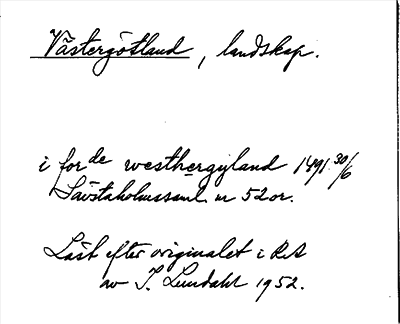 Västergötland, landskap.
i forde westhergyland 1491 30/6
Sävstaholmssaml. nr 52 or.
Läst efter originalet i RA
av I. Lundahl 1952.